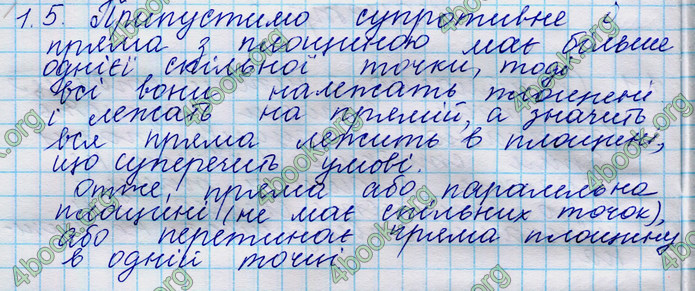 1.5. Припустимо супротивне і
пряма з площиною має більше
однієї спільної точки, тоді
всі вони належать площині
і лежать на прямій, а значить
вся пряма лежить в площині,
що суперечить умові.
Отже, пряма або паралельна
площині (не має спільних точок),
або перетинає пряма площину
в одній точці.
4book.org